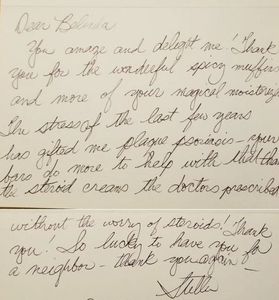 Dear Belinda
You amaze and delight me! Thank
you for the wonderful spicy muffins
and more of your magical moisture
The stress of the last few years
has gifted me plaque psoriasis - your
bars do more to help with that than
the steroid creams the doctors prescribed
without the worry of steroids! Thank
you! So lucky to have you for
a neighbor - thank you again -